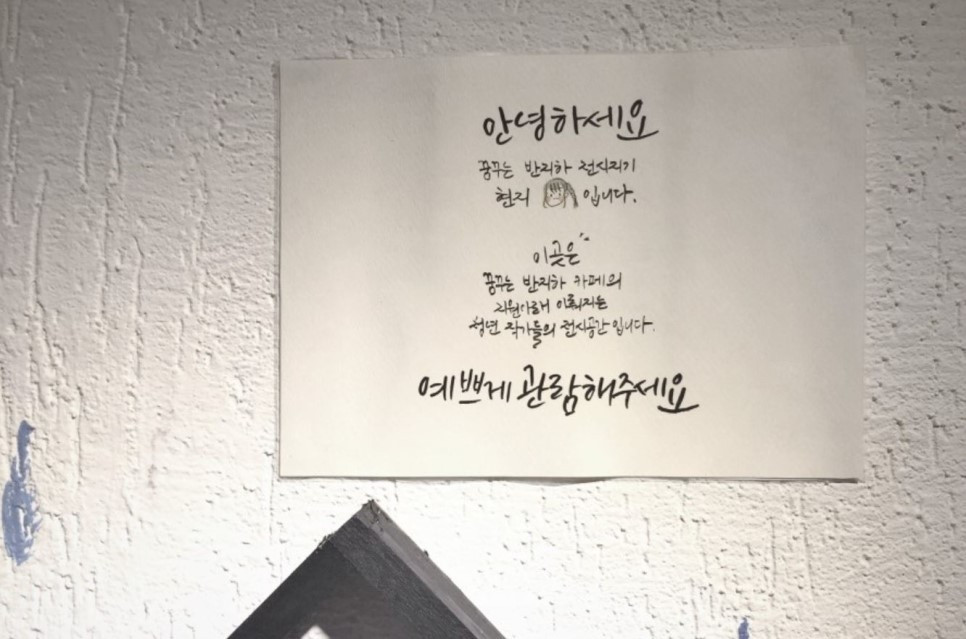 안녕하세요
꿈꾸는 반지하 전시지기
현지 입니다.
이곳은
꿈꾸는 반지하 카페의
지원아래 이뤄지는
청년 작가들의 전시공간입니다.
예쁘게 관람해주세요